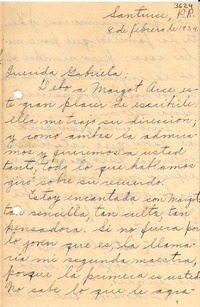 3624
Santurce, P.R.
8 de febrero de 1934
Querida Gabriela:
Debo a Margot Arce, es-
te gran placer de escribirle.
Ella me trajo su direccion;
y como ambas la admira-
mos y queremos a usted
tanto, todo lo que hablamos
giró sobre su recuerdo.
Estoy encantada con Margot
tan sencilla, tan culta, tan
pensadora. Si no fuera por
lo joven que es, la llama-
ría mi segunda maestra,
porque la primera es usted.
No sabe lo que le agra-
1